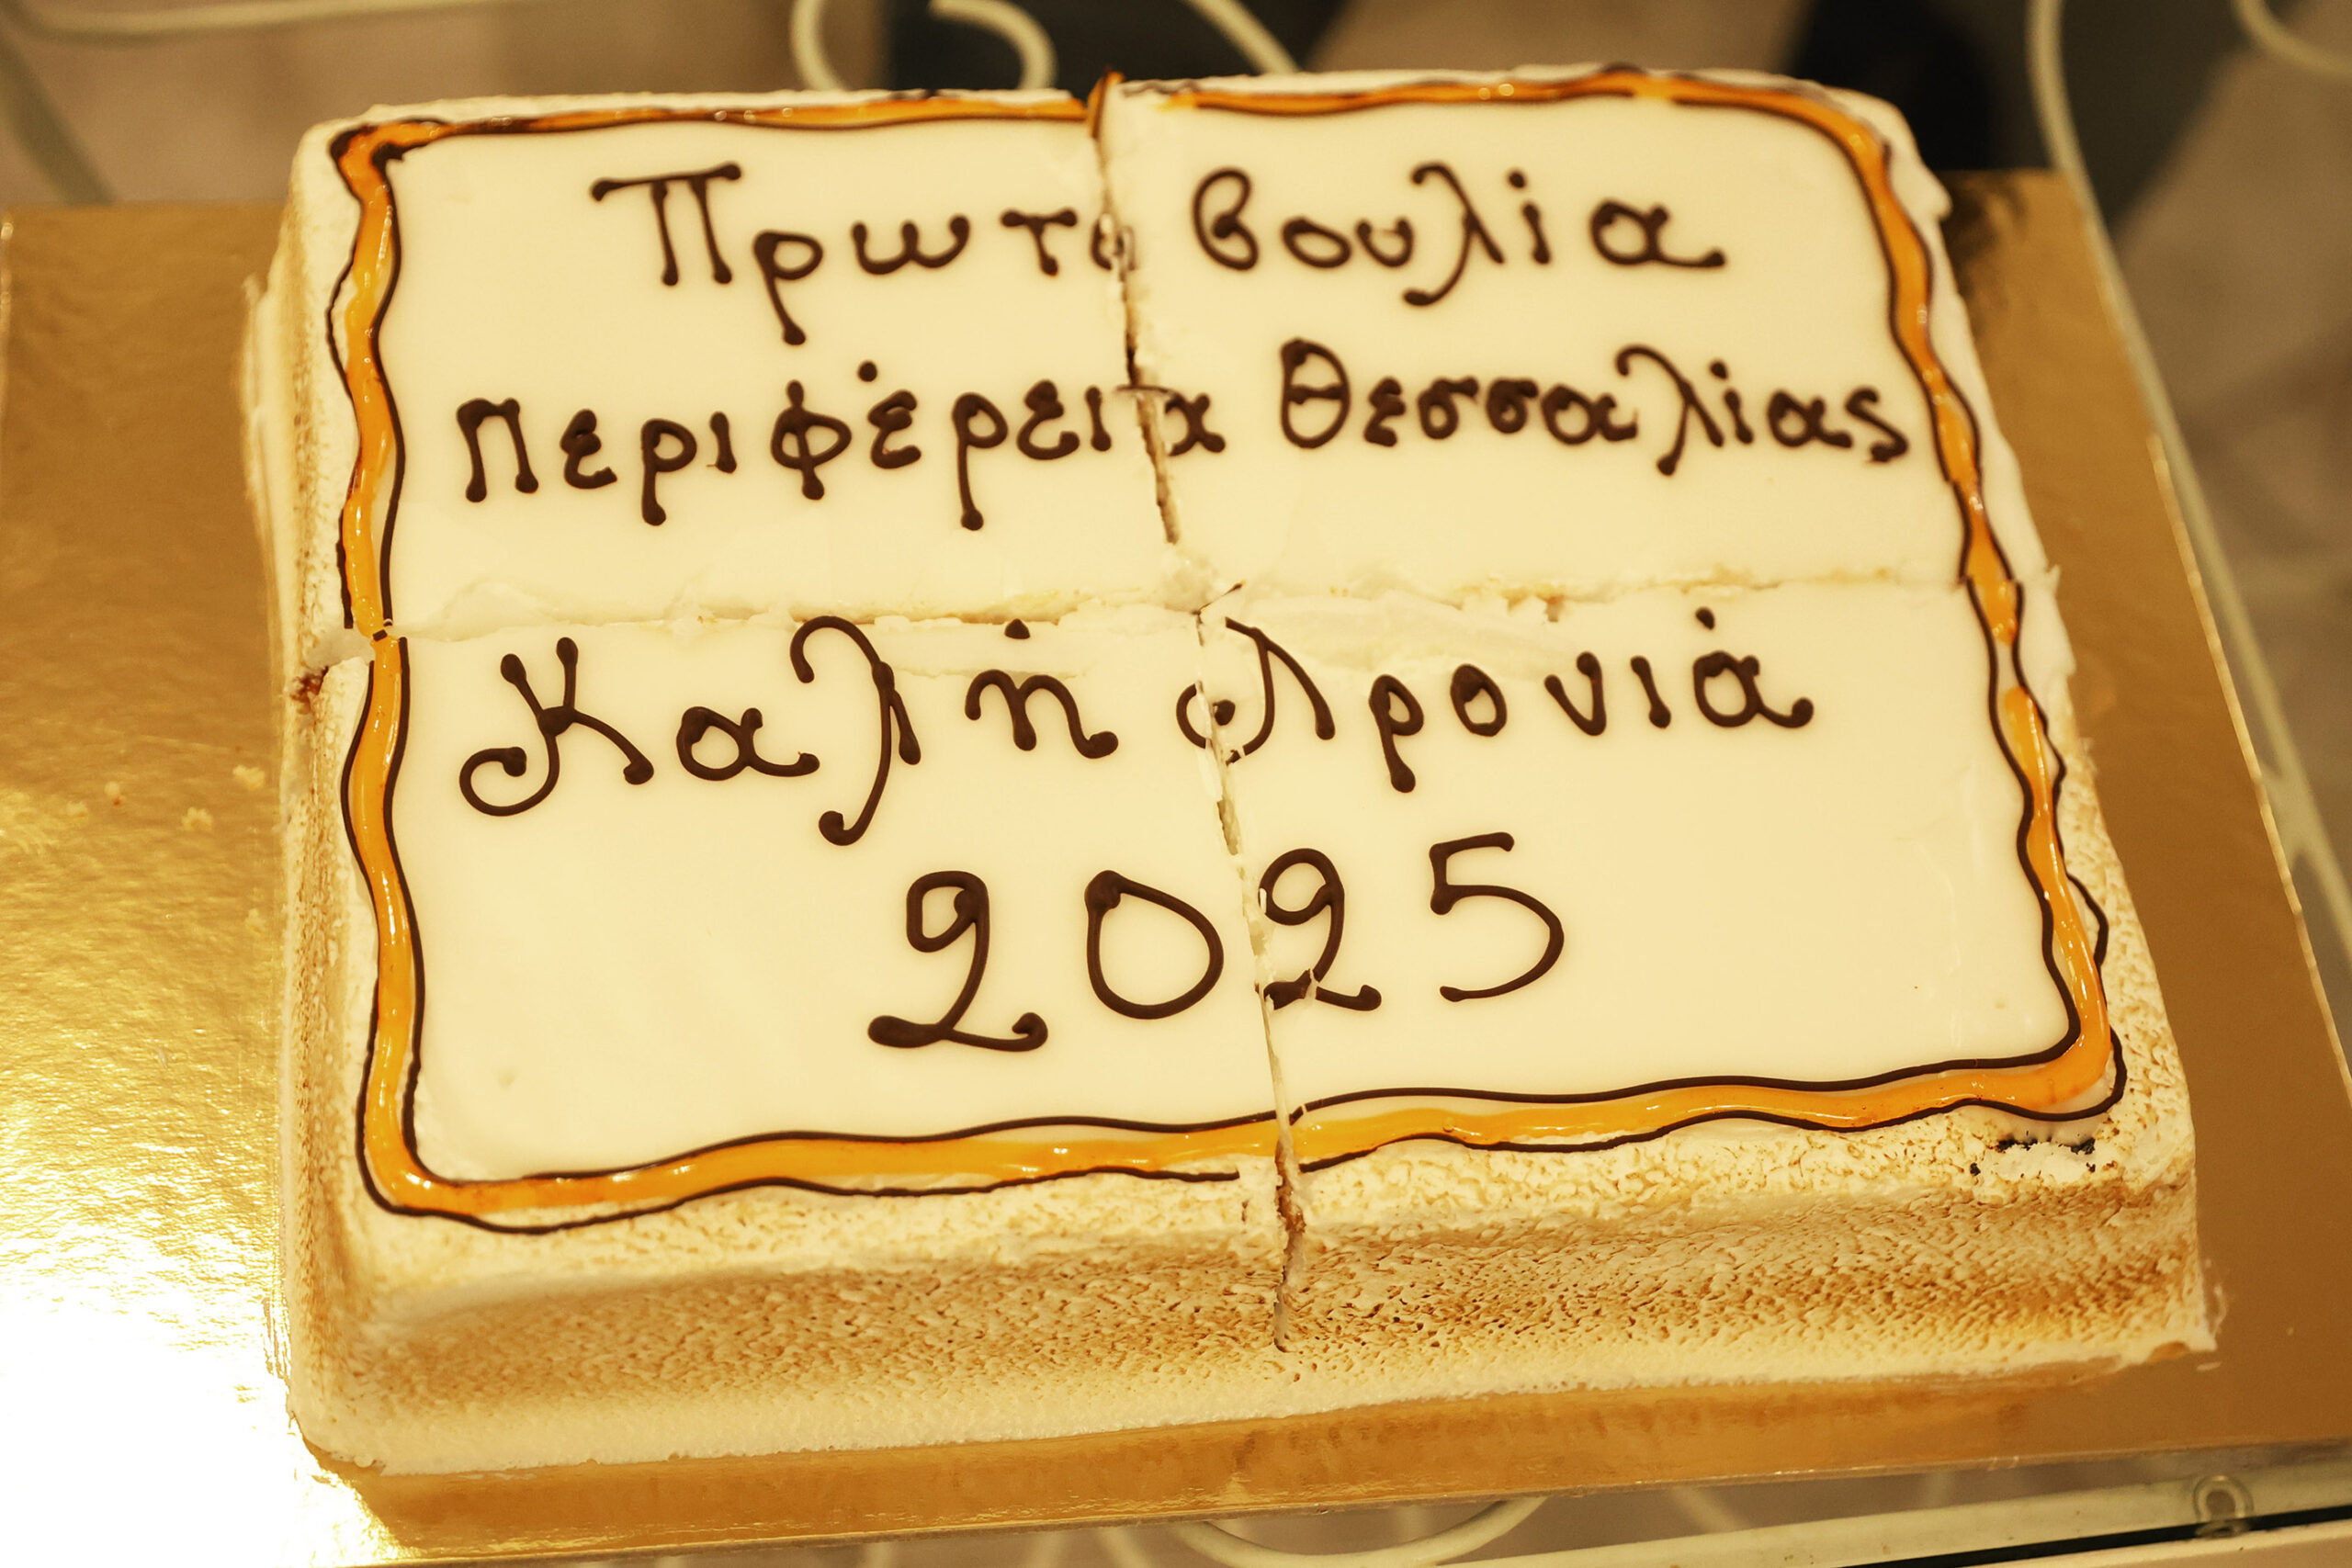 Πρωτοβουλία
περιφέρεια Θεσσαλίας
Καλή Χρονιά
2025